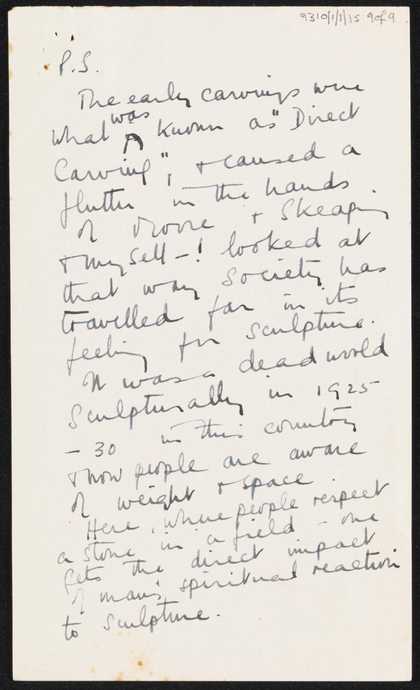 9310/1/1/15 9 of 9
P.S.
The early carvings were
what was known as "Direct
Carving", & caused a
flutter in the hands
of Moore & Skeaping
& myself – ! looked at
that way Society has
travelled far in its
feeling for sculpture.
It was a dead world
Sculpturally in 1925
– 30 in this country
& now people are aware
of weight & space
Here, where people respect
a stone in a field – one
gets the direct impact
of man's spiritual reaction
to sculpture.